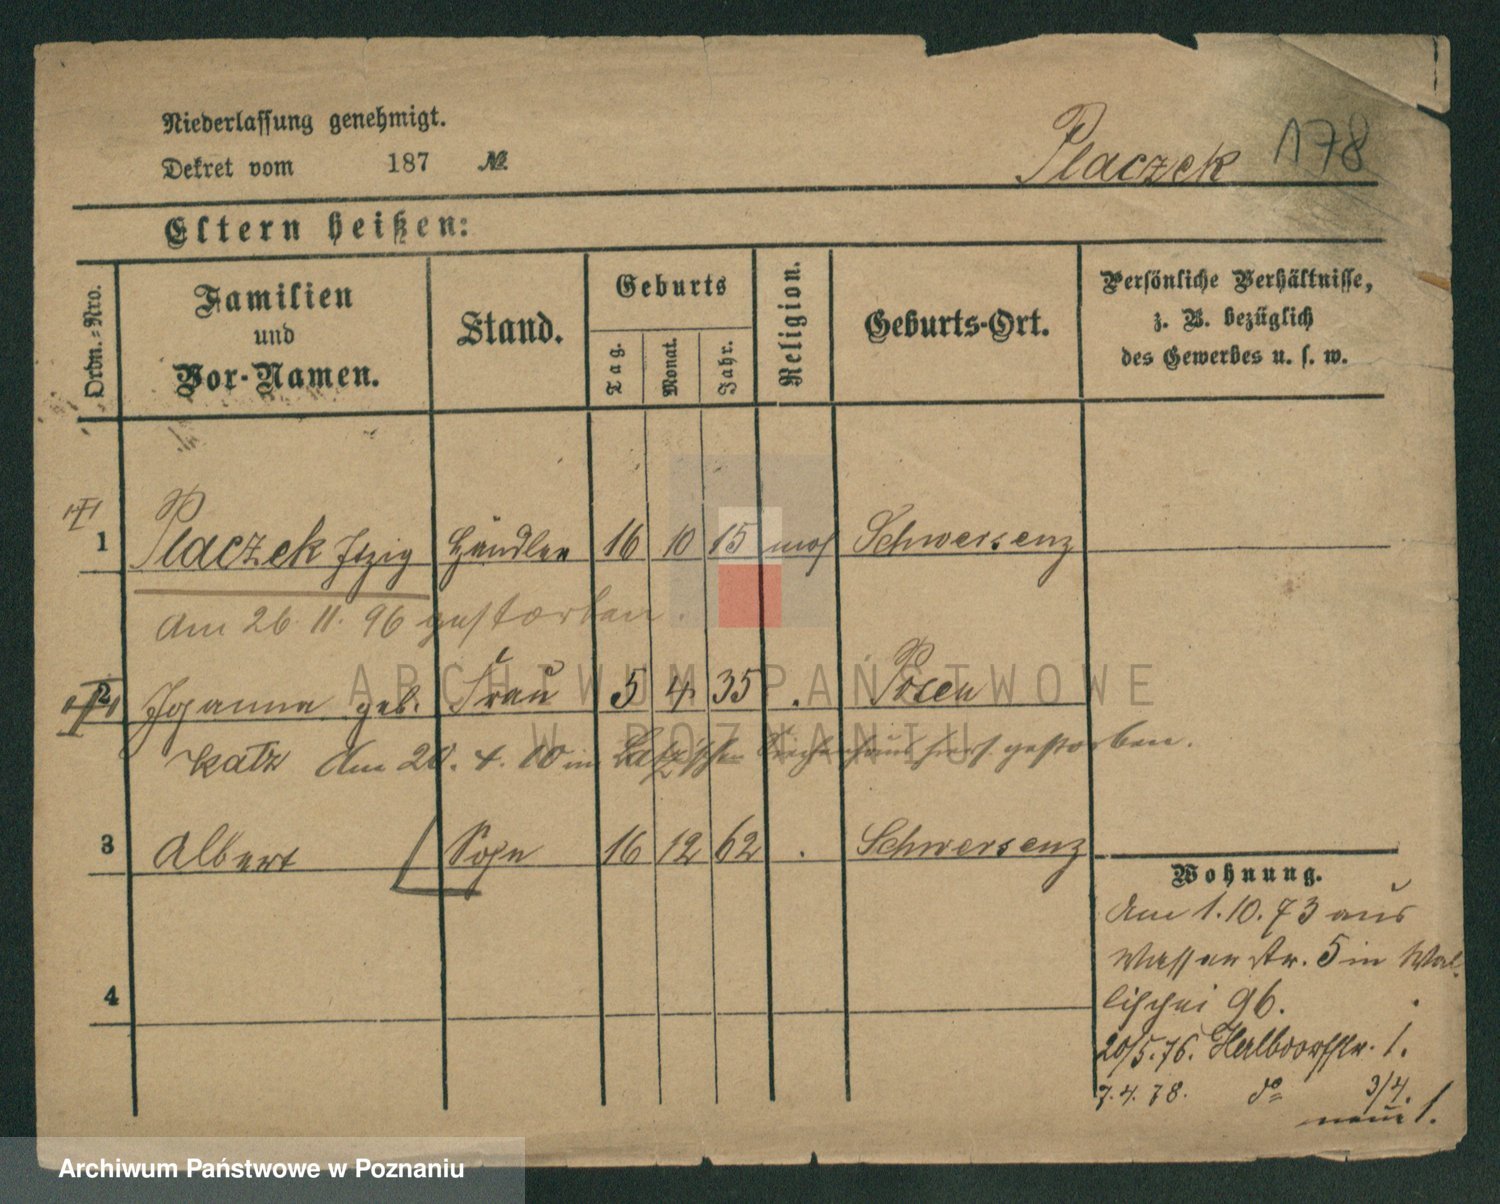 Niederlassung genehmigt.
Dekret vom 187 №
Placzek 178
Eltern heißen:
Ordn.-Nro.
Familien und Vor-Namen.
Stand.
Geburts
Tag. Monat. Jahr.
Religion.
Geburts-Ort.
Persönliche Verhältnisse,
z. B. bezüglich
des Gewerbes u. s. w.
1 Placzek Itzig Händler 16 10 15 mos Schwersenz
Am 26. 11. 96 gestorben.
2 Johanna geb. Frau 5 4 35 . Posen
Katz Am 20. 4. 00 im Latz'schen Siechenhaus hiers. gestorben.
3 Albert Sohn 16 12 62 . Schwersenz
Wohnung.
Am 1. 10. 73 aus
Wasserstr. 5 in Wal-
lischei 96.
4
20/5. 76. Halbdorfstr. 1.
7. 4. 78. do 3/4.
neue 1.
ARCHIWUM PAŃSTWOWE
W POZNANIU
Archiwum Państwowe w Poznaniu